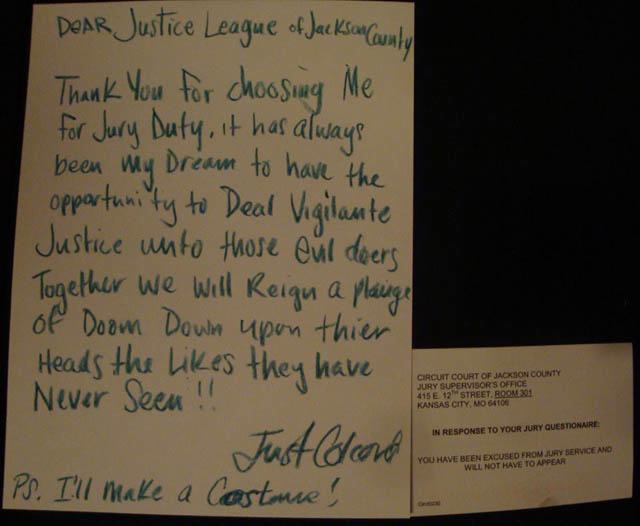 DEAR Justice League of Jackson County
Thank You for choosing Me
For Jury Duty, it has always
been my Dream to have the
opportunity to Deal Vigilante
Justice unto those evil doers
Together We Will Reign a plauge
of Doom Down upon thier
Heads the Likes they have
Never Seen!!
Just
Ps. I'll make a Costume!
CIRCUIT COURT OF JACKSON COUNTY
JURY SUPERVISOR'S OFFICE
415 E. 12TH STREET, ROOM 301
KANSAS CITY, MO 64106
IN RESPONSE TO YOUR JURY QUESTIONAIRE:
YOU HAVE BEEN EXCUSED FROM JURY SERVICE AND
WILL NOT HAVE TO APPEAR